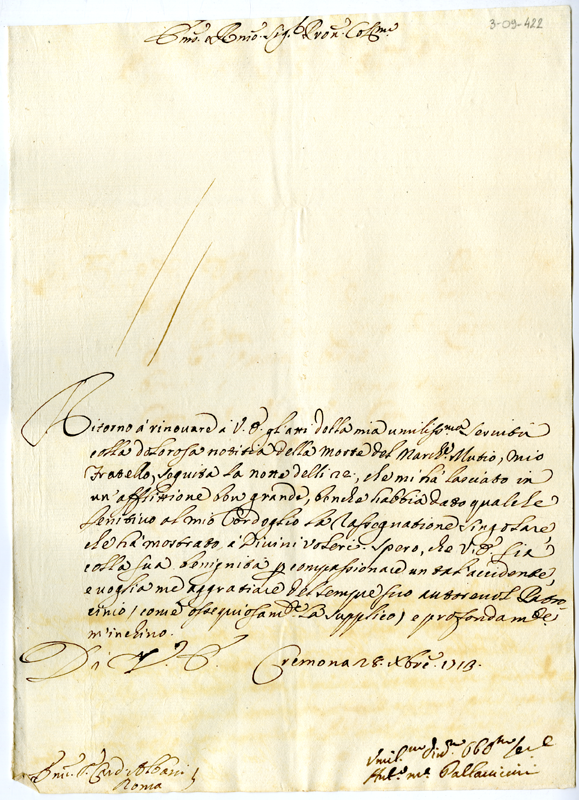 3-09-422
Em̃o. e Rm̃o. Sig.r Pron. Col.mo
Ritorno à rinouare à V. E. gl'atti della mia umiliss.ma seruitù
colla dolorosa notitia della morte del March.e Mutio, mio
fratello, seguita la notte delli 22, che mi hà lasciato in
un'afflittione ben grande, benche habbia dato qualche
lenitiuo al mio Cordoglio la Rassegnatione singolare,
che hà mostrato à Diuini Voleri. Spero, che V. E. sia
colla sua benignità p compassionare un tal accidente,
e uoglia me aggratiare del sempre suo autoreuol Patro
cinio, come ossequiosam.te la supplico, e profondam.te
m'inchino.
Di V. E. Cremona 28. Xbre. 1713.
Em̃o. S.r Card. Albani
Roma
Umil.mo Diu.mo Obb.mo Ser.e
Ant.o M.a Pallauicini